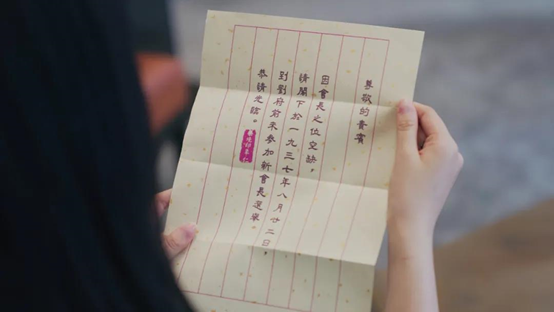 尊敬的貴賓
因會長之位空缺，
請閣下於一九三七年八月廿二日，
到劉府前來參加新會長選舉
恭請光臨。